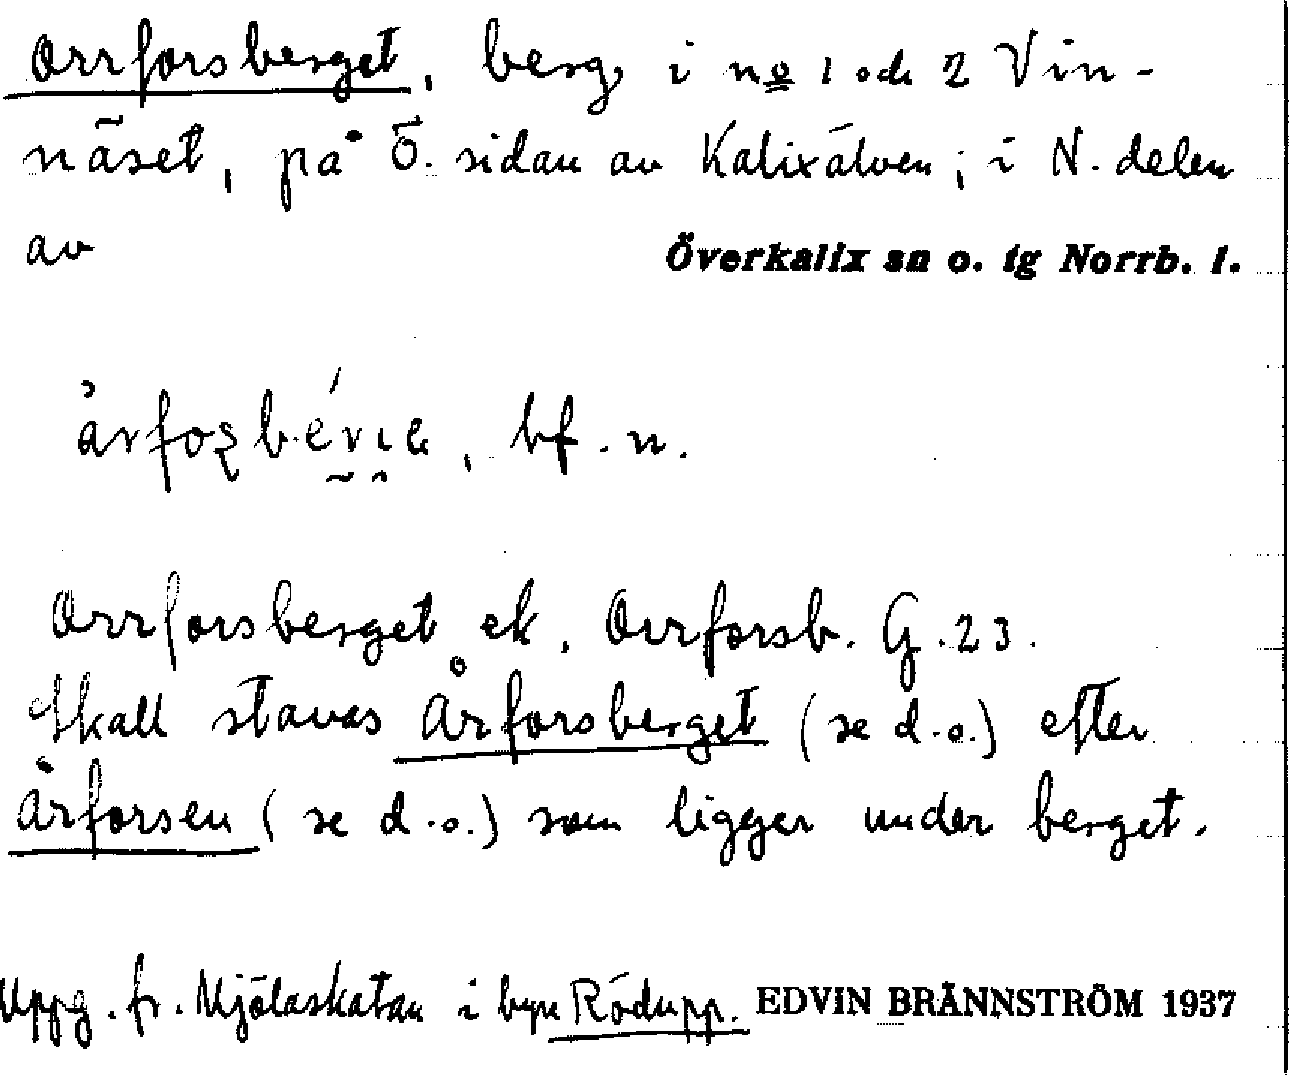 Orrforsberget, berg, i no 1 och 2 Vin-
näset, på Ö. sidan av Kalixälven; i N. delen
av Överkalix sn o. tg Norrb. l.
bf. n.
Orrforsberget ek, Orrforsb. G. 23.
Skall stavas Årforsberget (se d.o.) efter
Årforsen (se d.o.) som ligger under berget.
Uppg. fr. Mjölaskatan i byn Rödupp. EDVIN BRÄNNSTRÖM 1937